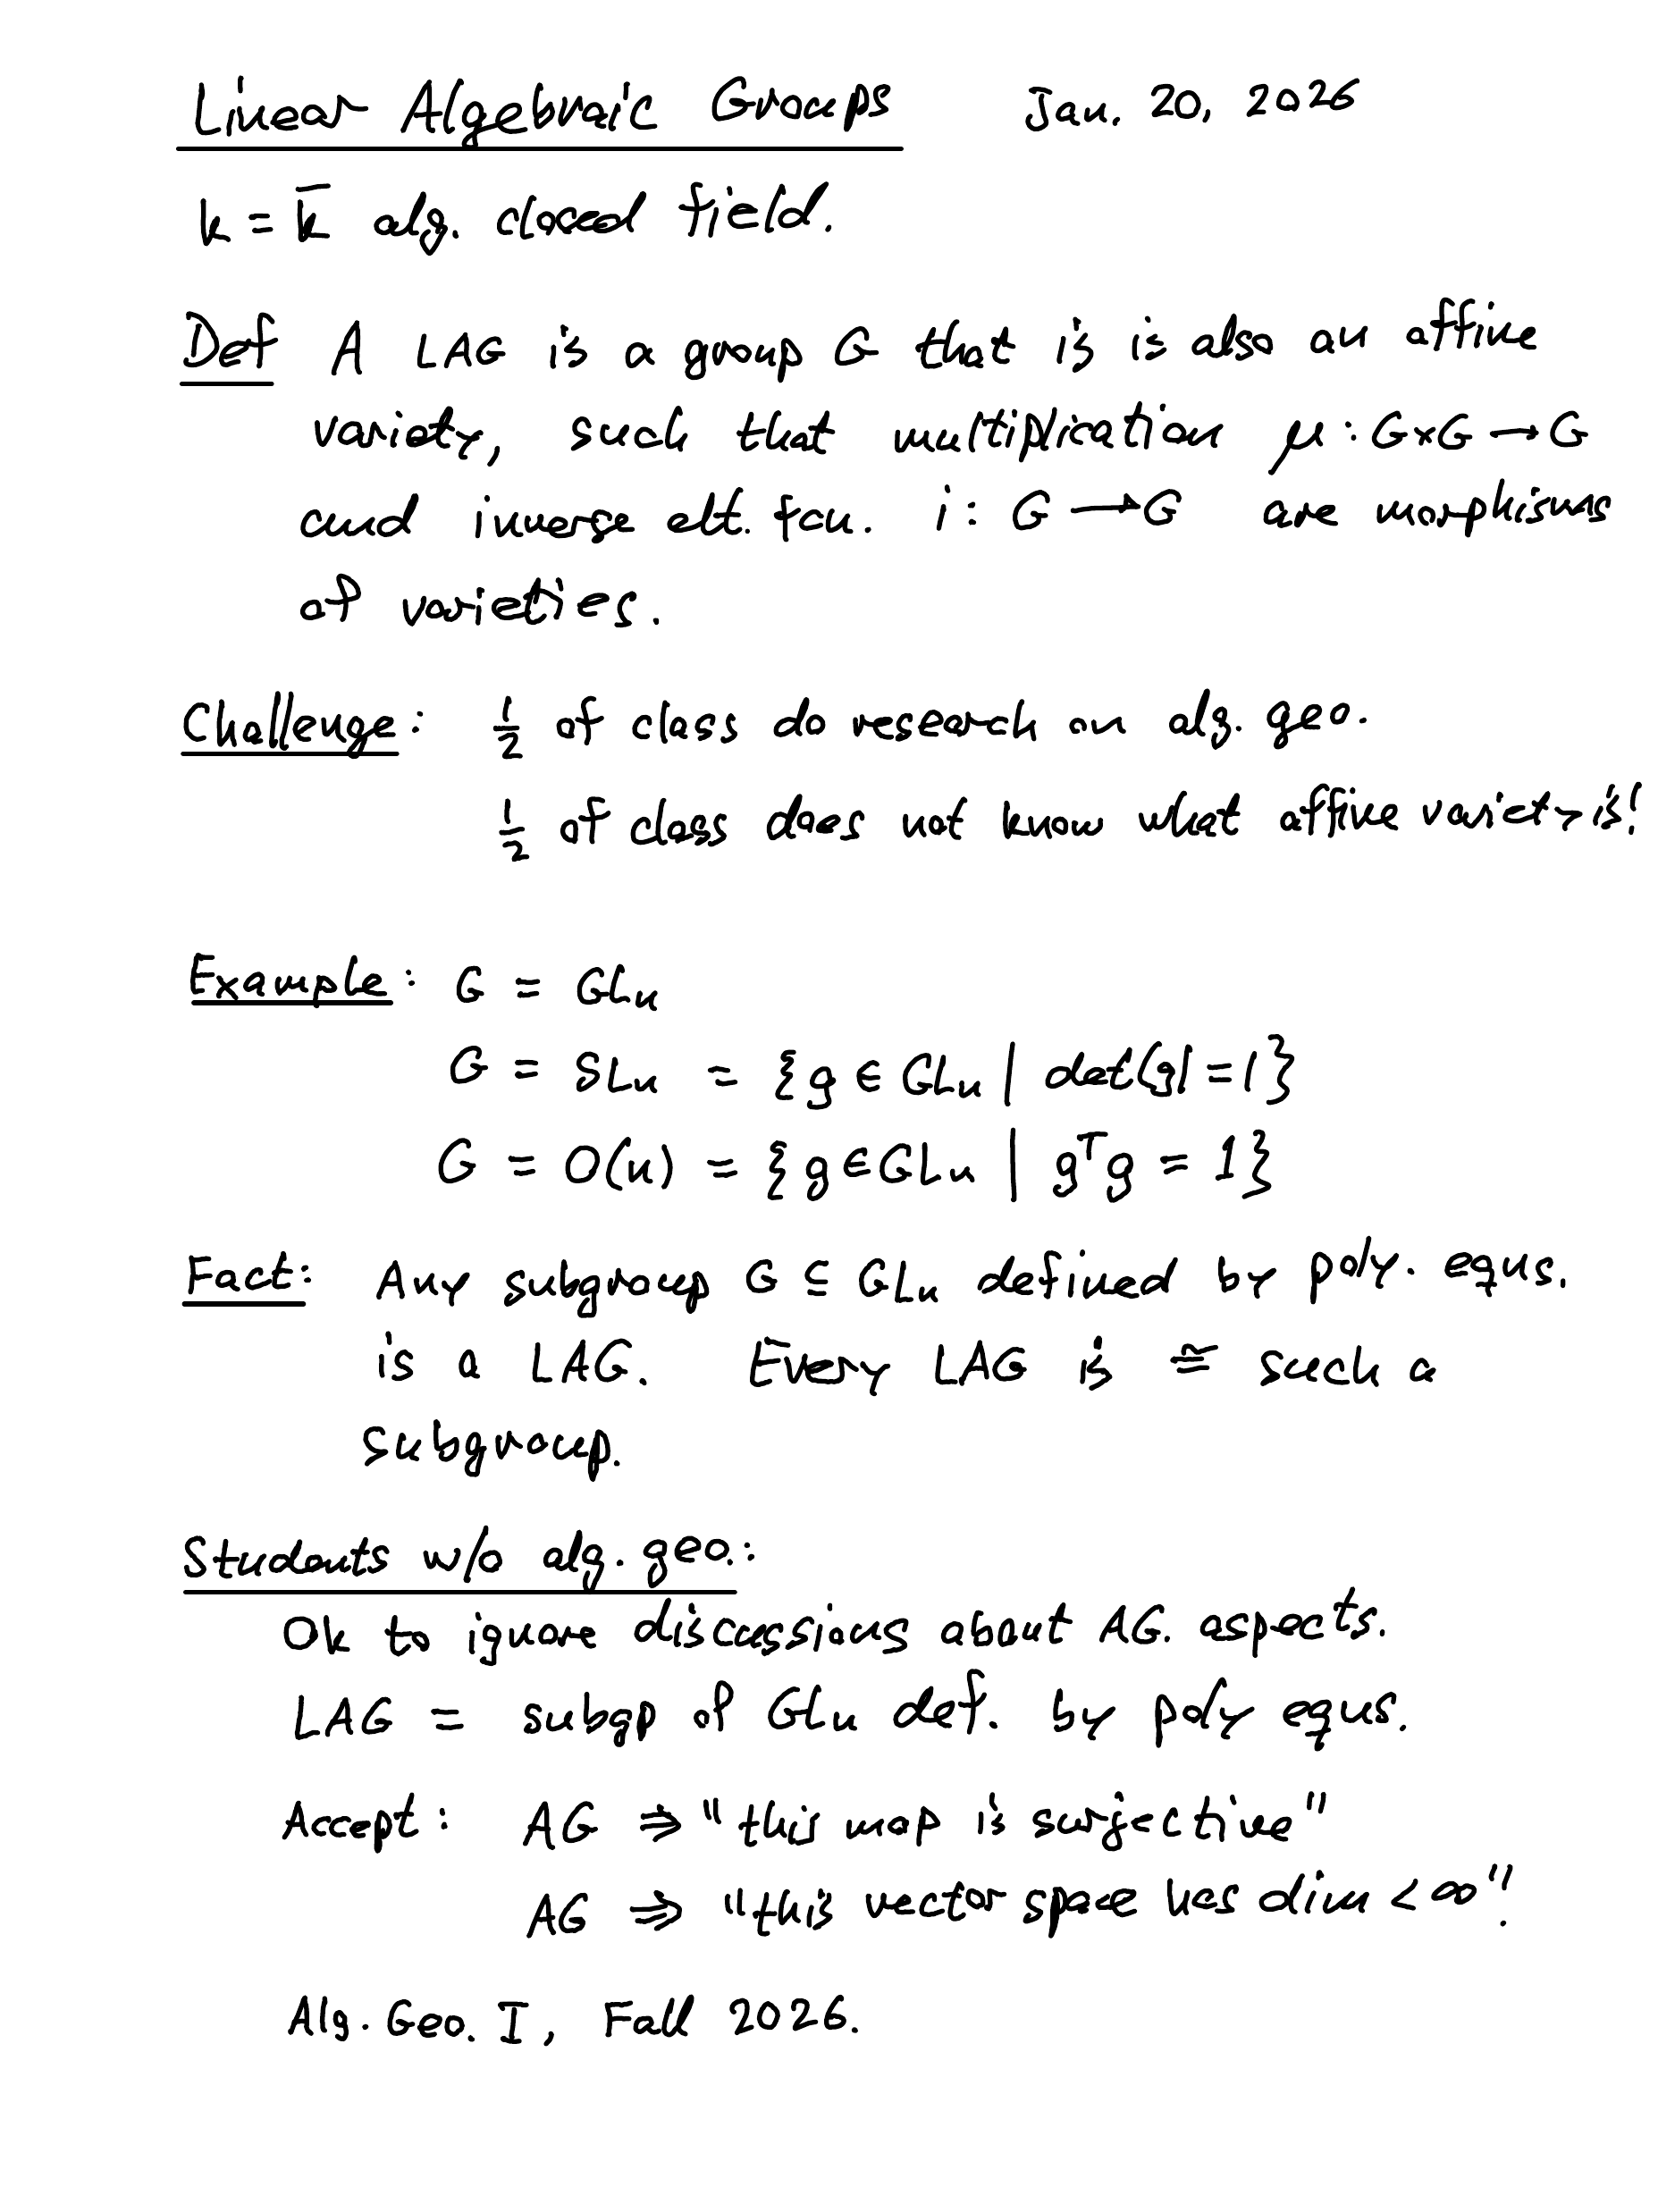 Linear Algebraic Groups Jan. 20, 2026
k = k̅ alg. closed field.
Def A LAG is a group G that is is also an affine
variety, such that multiplication μ : G×G → G
and inverse elt. fcn. i : G → G are morphisms
of varieties.
Challenge: ½ of class do research on alg. geo.
½ of class does not know what affine variety is!
Example: G = GLn
G = SLn = {g ∈ GLn | det(g) = 1}
G = O(n) = {g ∈ GLn | gᵀg = 1}
Fact: Any subgroup G ⊆ GLn defined by poly. eqns.
is a LAG. Every LAG is ≅ such a
subgroup.
Students w/o alg. geo.:
Ok to ignore discussions about AG. aspects.
LAG = subgp of GLn def. by poly eqns.
Accept: AG ⇒ "this map is surjective"
AG ⇒ "this vector space has dim < ∞".
Alg. Geo. I, Fall 2026.